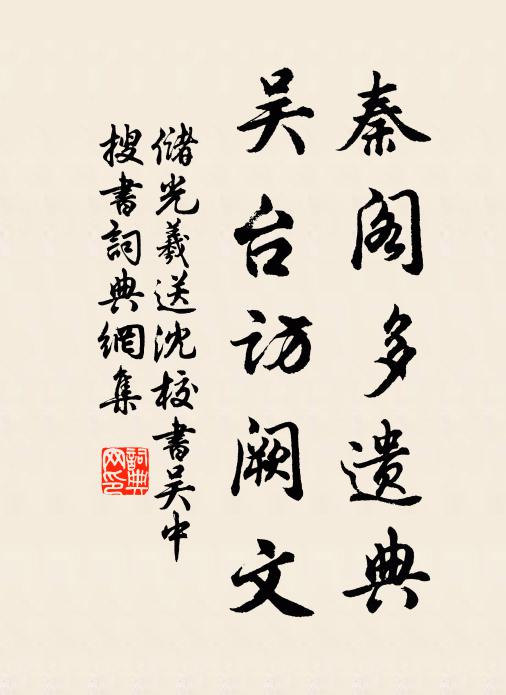 秦阁多遗典
吴台访阙文
储光羲送沈校書吴中
搜書詞典網集
詞典网印